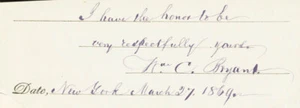 I have the honor to be
very respectfully yours
Wm C. Bryant.
Date, New York March 27. 1869.